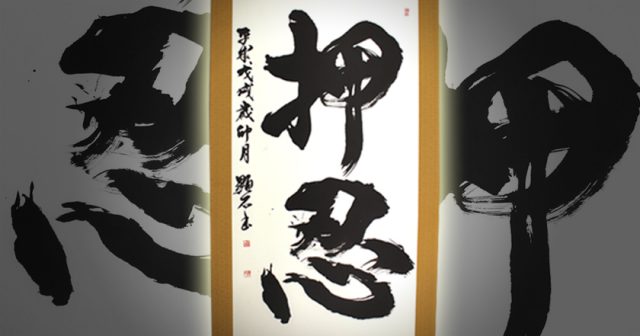 押忍
平成戊戌歳卯月